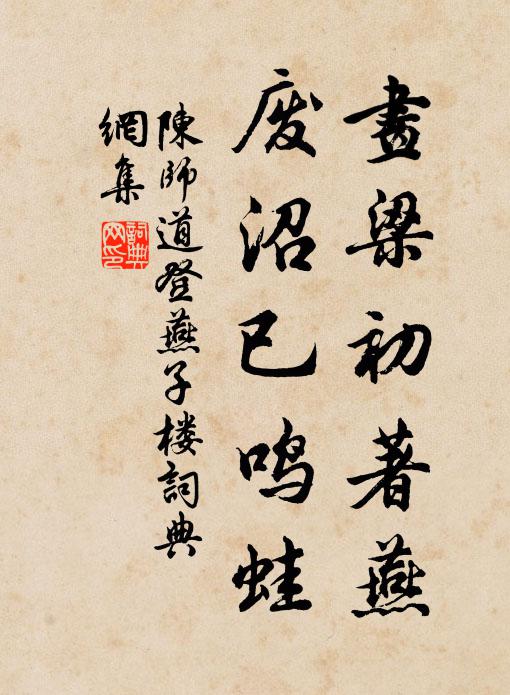 畫梁初著燕
废沼已鸣蛙
陳師道登燕子楼詞典
網集
詞典
网印